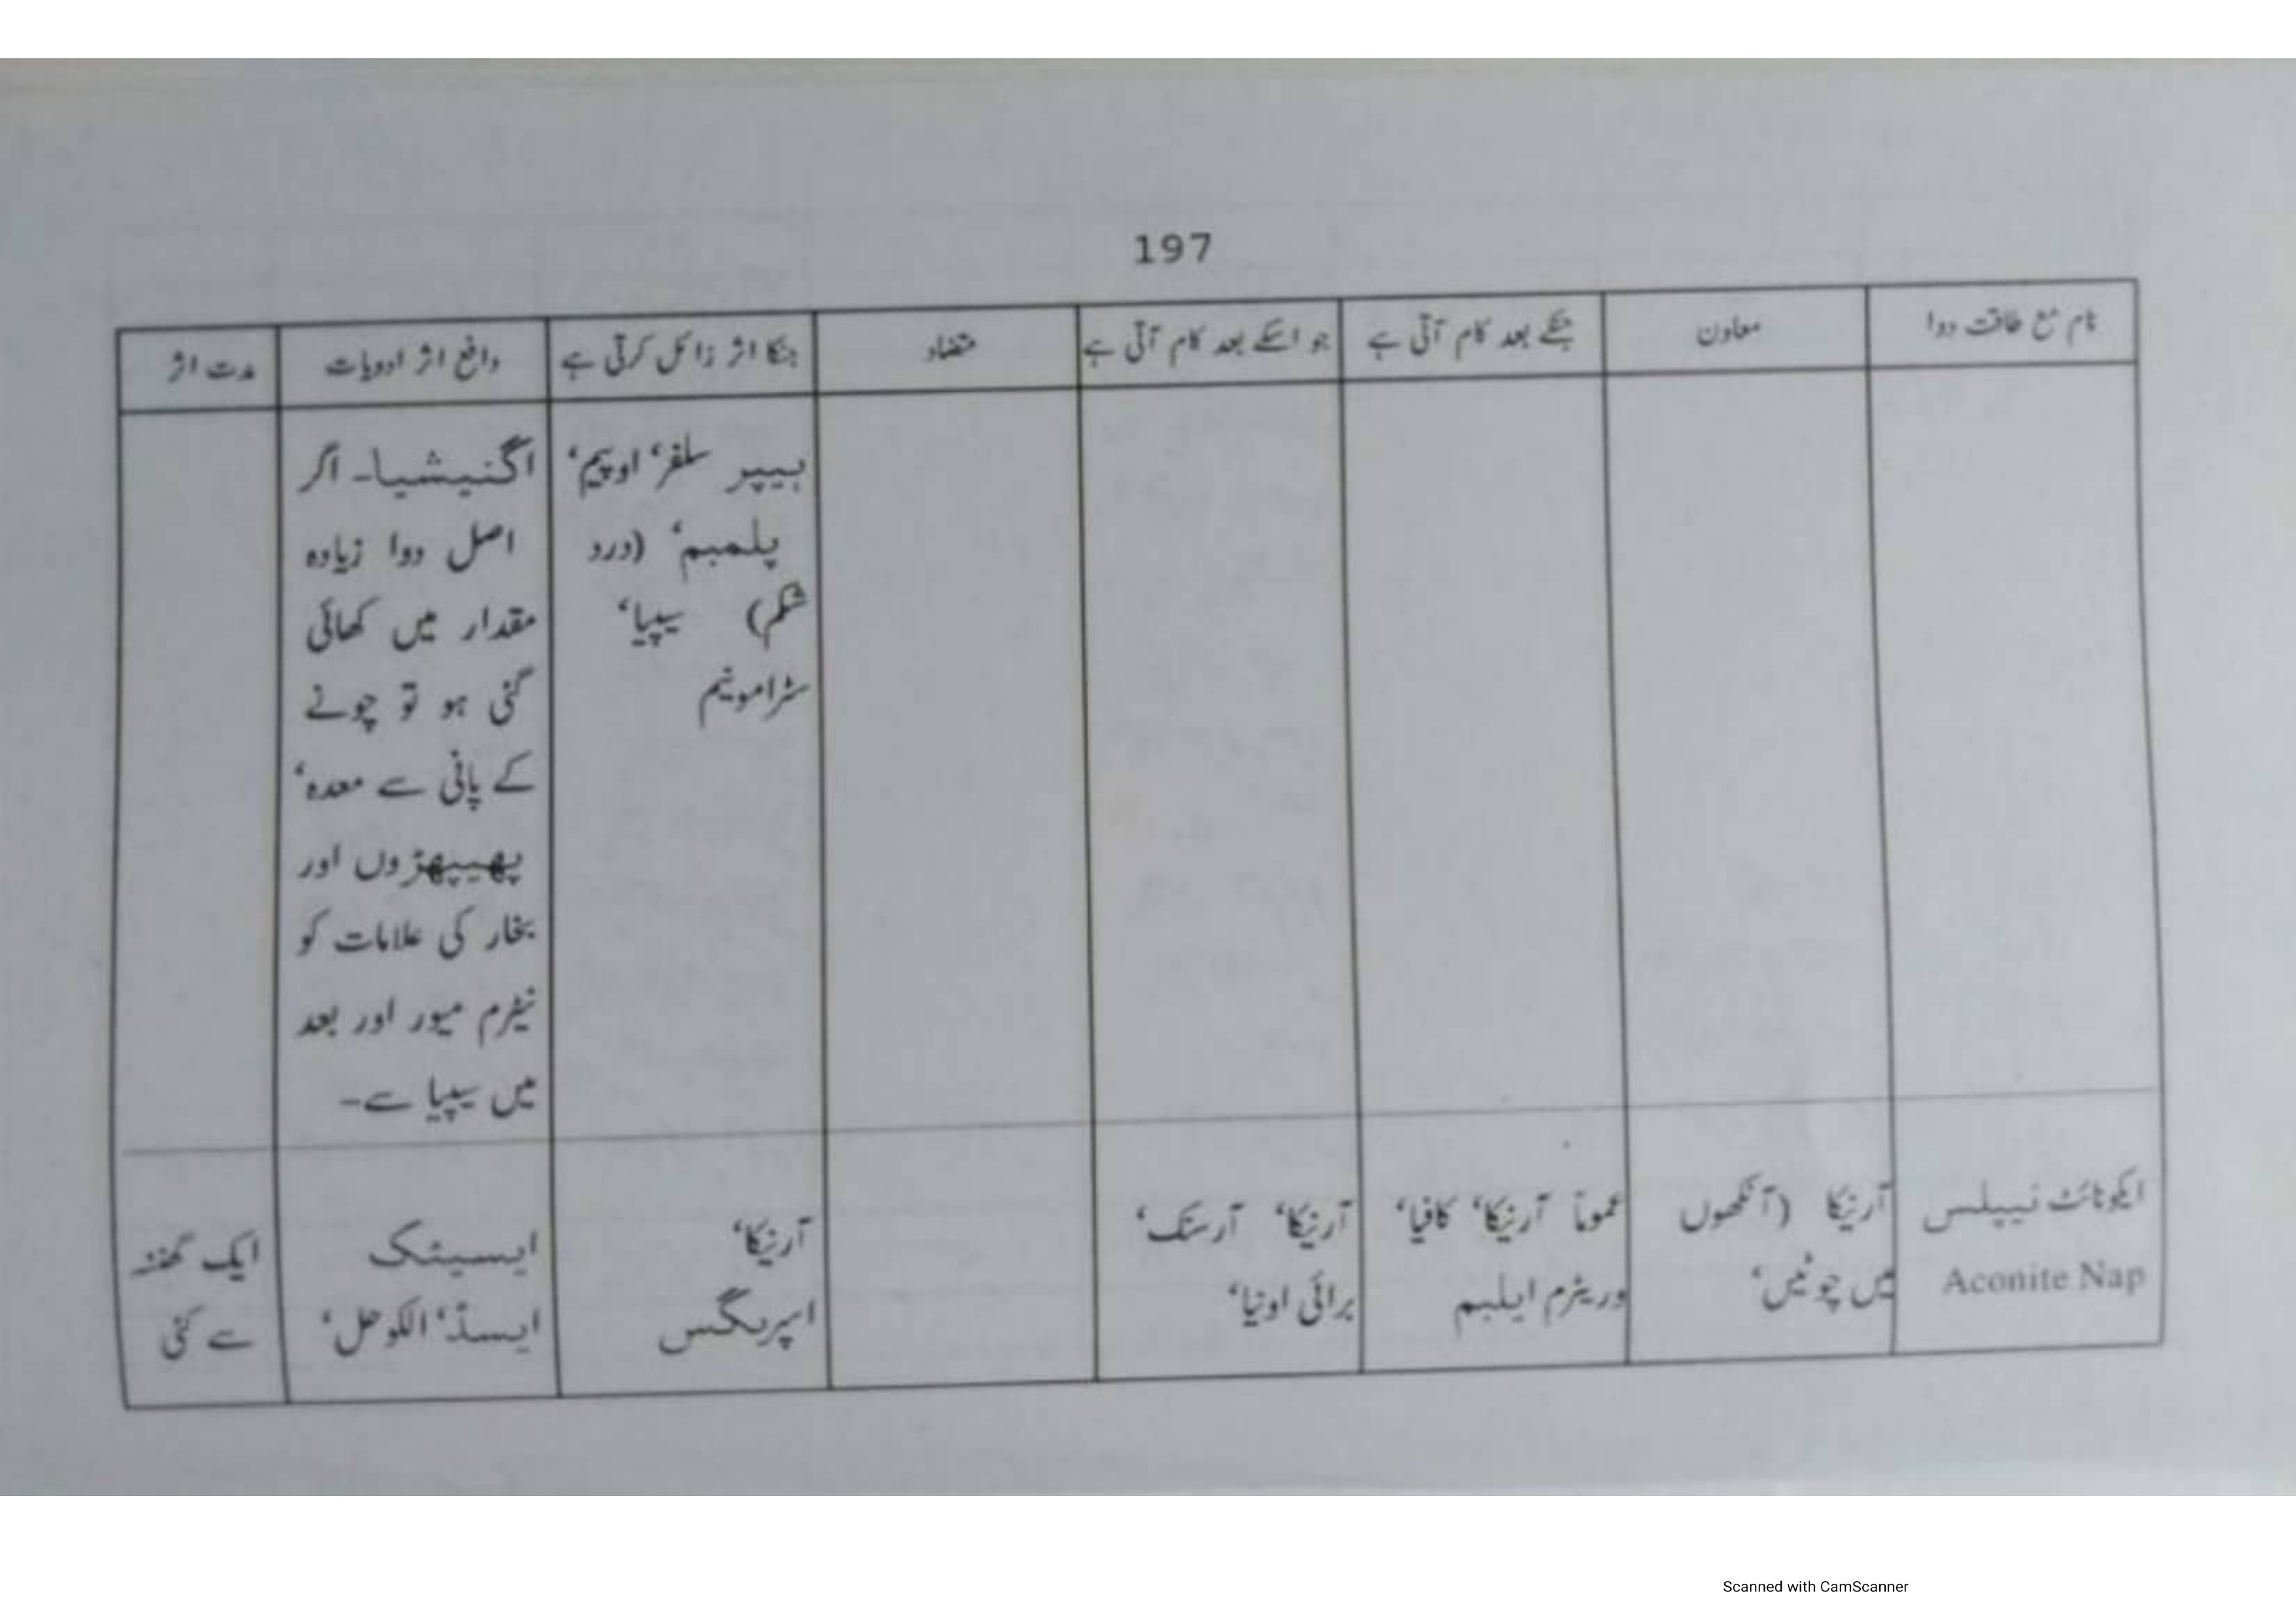 197
نام مع طاقت دوا
معاون
جنکے بعد کام آتی ہے
جو اسکے بعد کام آتی ہے
متضاد
جنکا اثر زائل کرتی ہے
دافع اثر ادویات
مدت اثر
ہیپر سلفر، اوپیم،
پلمبم، (درد
شکم) سیپیا،
سٹرامونیم
اگنیشیا۔ اگر
اصل دوا زیادہ
مقدار میں کھائی
گئی ہو تو چونے
کے پانی سے معدہ،
پھیپھڑوں اور
بخار کی علامات کو
نیٹرم میور اور بعد
میں سیپیا سے۔
ایکونائٹ نیپلس
Aconite Nap
آرنیکا (آنکھوں
میں چوٹیں،
عموماً آرنیکا، کافیا،
وریٹرم ایلبم
آرنیکا، آرسنک،
برائی اونیا،
آرنیکا،
اسپریگس
ایسیٹک
ایسڈ، الکوحل،
ایک گھنٹہ
سے کئی
Scanned with CamScanner